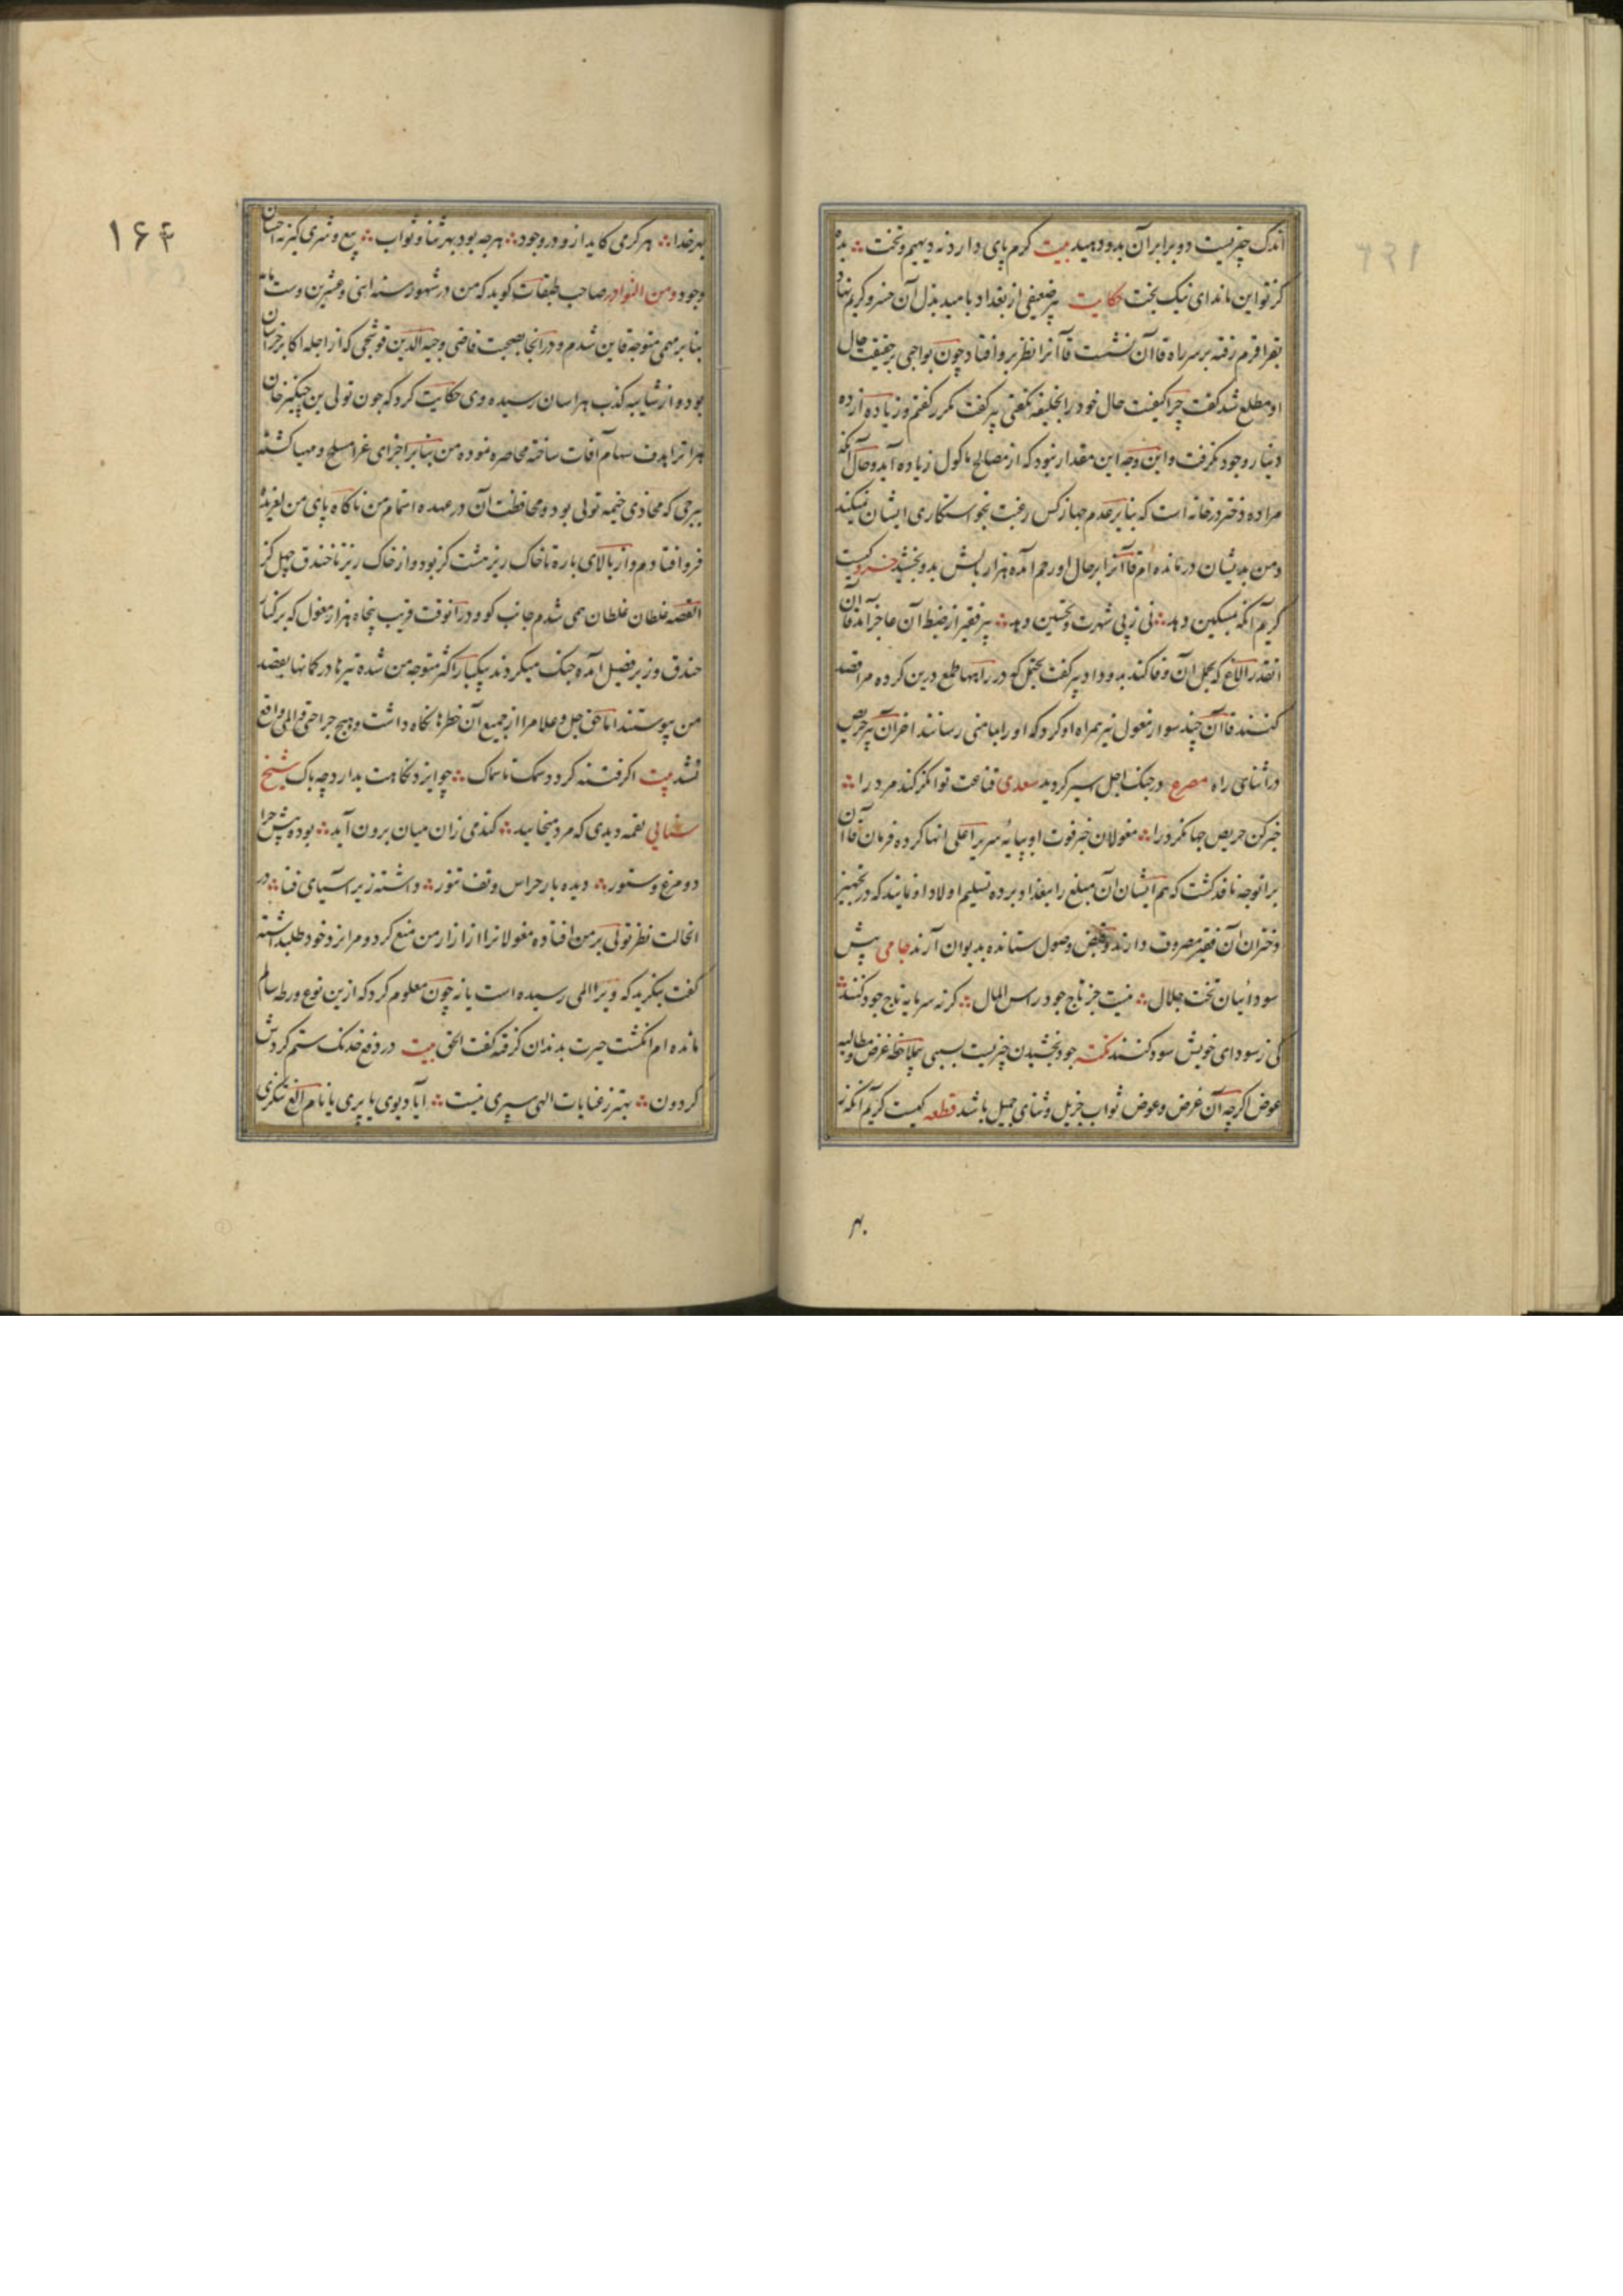 اندک چیزیست دو برابر آن بدو دهید بیت کرم پای دارد نه دیهیم و تخت بده
کز تو این ماند ای نیک بخت حکایت پیر ضعیفی از بغداد بامید بذل آن خسرو کریم نهاد
بقراقرم رفته بر سر راه قاآن نشست قاآنرا نظر برو افتاد چون بواجبی بر حقیقت حال
او مطلع شد کفت چرا کیفیت حال خود را بخلیفه نکفتی پیر کفت مکرر کفتم و زیاده از ده
دینار وجود نکرفت و این وجه این مقدار نبود که از مصالح ماکول زیاده آید و حال آنکه
مرا ده دختر در خانه است که بنا بر عدم جهاز کس رغبت بخواستکاری ایشان نمیکند
و من بدیشان درمانده ام قاآنرا بر حال او رحم آمده هزار بالش بدو بخشید خسرو کیست
کریم آنکه بمسکین دهد نی ز پی شهرت و تحسین دهد پیر فقیر از ضبط آن عاجز آمد قاآن
آنقدر الاغ که بحمل آن وفا کند بدو داد پیر کفت یحتمل که در راهها طمع درین کرده مرا قصد
کنند قاآن چند سوار مغول نیز همراه او کرد که او را بمامنی رسانند اخر آن پیر حریص
در اثنای راه مصرع در چنک اجل اسیر کردید سعدی قناعت توانکر کند مرد را
خبر کن حریص جهانکرد را مغولان خبر فوت او بپایه سریر اعلی انها کرده فرمان قاآن
برانوجه نافذ کشت که هم ایشان آن مبلغ را ببغداد برده تسلیم اولاد او نمایند که در تجهیز
دختران آن فقیر مصروف دارند و قبض وصول ستانده بدیوان آرند جامی پیش
سودائیان تخت جلال نیست جز تاج جود راس المال کر نه سرمایه تاج جود کنند
کی ز سودای خویش سود کنند نکته جود بخشیدن چیزیست بی سببی بملاحظه غرض و مطالبه
عوض اکرچه آن غرض و عوض ثواب جزیل و ثنای جمیل باشد قطعه کیست کریم آنکه نه
بهر
۱۶۴
بهر خدا هر کرمی کاید ازو در وجود هر چه بود بهر ثنا و ثواب بیع و شری کیر نه احسان
وجود و من النوادر صاحب طبقات کوید که من در شهور سنه اثنی و عشرین و ستمائه
بنا بر مهمی متوجه قاین شدم و در آنجا بصحبت قاضی وجیه الدین فوشنجی که از اجله اکابر خراسان
بود و از شایبه کذب هراسان رسیده وی حکایت کرد که چون تولی بن چنکیز خان
هرات را هدف سهام آفات ساخته محاصره نموده من بنا بر اجزای غزا مسلح و مهیا کشته
ببرجی که محاذی خیمه تولی بود و محافظت آن در عهده اتمام من ناکاه پای من لغزیده
فرو افتادم و از بالای باره تا خاک ریز هشت کز بود و از خاک ریز تا خندق چهل کز
القصه غلطان غلطان همی شدم جانب کو و در آنوقت قریب پنجاه هزار مغول که بر کنار
خندق و زیر فصیل آمده جنک میکردند بیکبار اکثر متوجه من شده تیرها در کمانها بقصد
من پیوستند اما حق جل و علا مرا از جمیع آن خطرها نکاه داشت و هیچ جراحتی و المی واقع
نشد بیت اکر فتنه کردد سمک تا سماک چو ایزد نکاهت بدارد چه باک شیخ
سنایی لقمه دیدی که مرد میخایید کندمی زان میان برون آید بوده پیش چرا
دو مرغ و ستور دیده بار حراس و تف تنور داشته زیر آسیای فنا در
انحالت نظر تولی بر من افتاده مغولانرا از ازار من منع کرد و مرا نزد خود طلبداشته
کفت بنکرید که ویرا المی رسیده است یا نه چون معلوم کرد که ازین نوع ورطه سالم
مانده ام انکشت حیرت بدندان کرفته کفت الحق بیت در دفع خدنک ستم کردش
کردون بهتر ز عنایات الهی سپری نیست آیا دیوی یا پری یا نام الغ تنکری